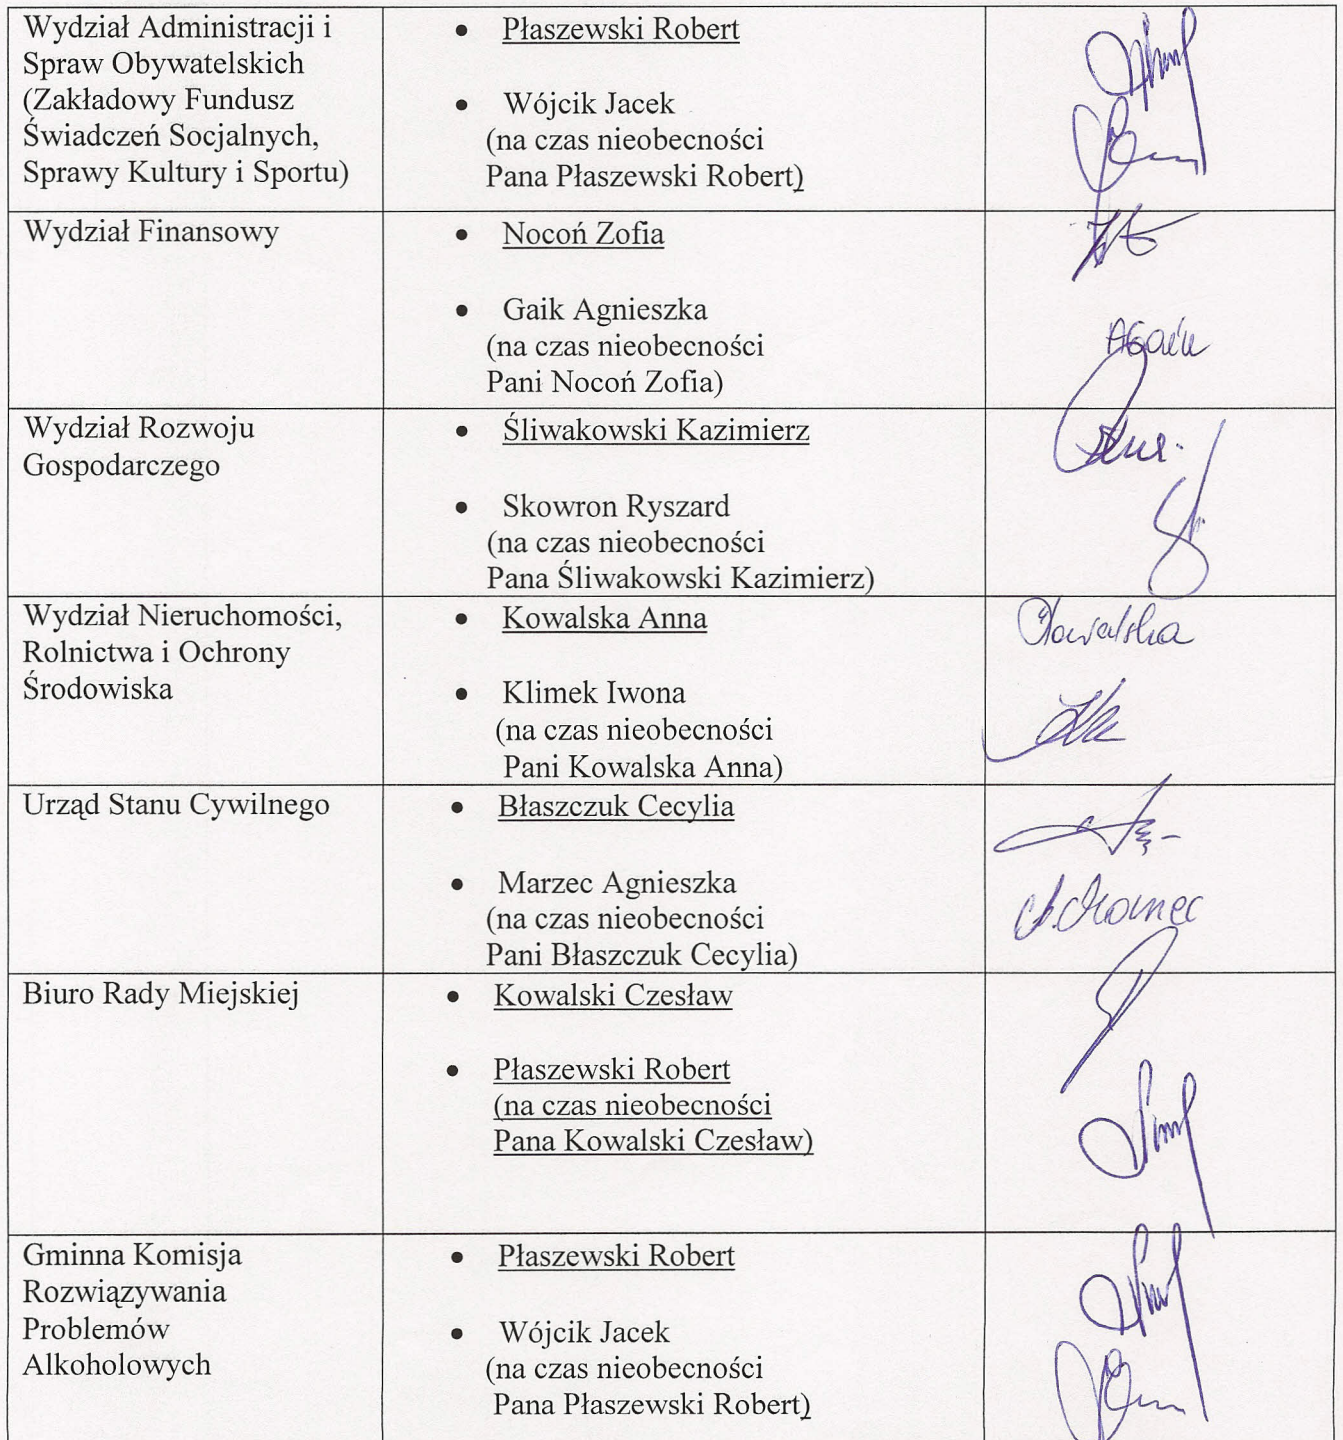 Wydział Administracji i
Spraw Obywatelskich
(Zakładowy Fundusz
Świadczeń Socjalnych,
Sprawy Kultury i Sportu)
• Płaszewski Robert
• Wójcik Jacek
(na czas nieobecności
Pana Płaszewski Robert)
Wydział Finansowy
• Nocoń Zofia
• Gaik Agnieszka
(na czas nieobecności
Pani Nocoń Zofia)
AGaik
Wydział Rozwoju
Gospodarczego
• Śliwakowski Kazimierz
• Skowron Ryszard
(na czas nieobecności
Pana Śliwakowski Kazimierz)
Wydział Nieruchomości,
Rolnictwa i Ochrony
Środowiska
• Kowalska Anna
• Klimek Iwona
(na czas nieobecności
Pani Kowalska Anna)
Kowalska
Urząd Stanu Cywilnego
• Błaszczuk Cecylia
• Marzec Agnieszka
(na czas nieobecności
Pani Błaszczuk Cecylia)
A. Marzec
Biuro Rady Miejskiej
• Kowalski Czesław
• Płaszewski Robert
(na czas nieobecności
Pana Kowalski Czesław)
Gminna Komisja
Rozwiązywania
Problemów
Alkoholowych
• Płaszewski Robert
• Wójcik Jacek
(na czas nieobecności
Pana Płaszewski Robert)